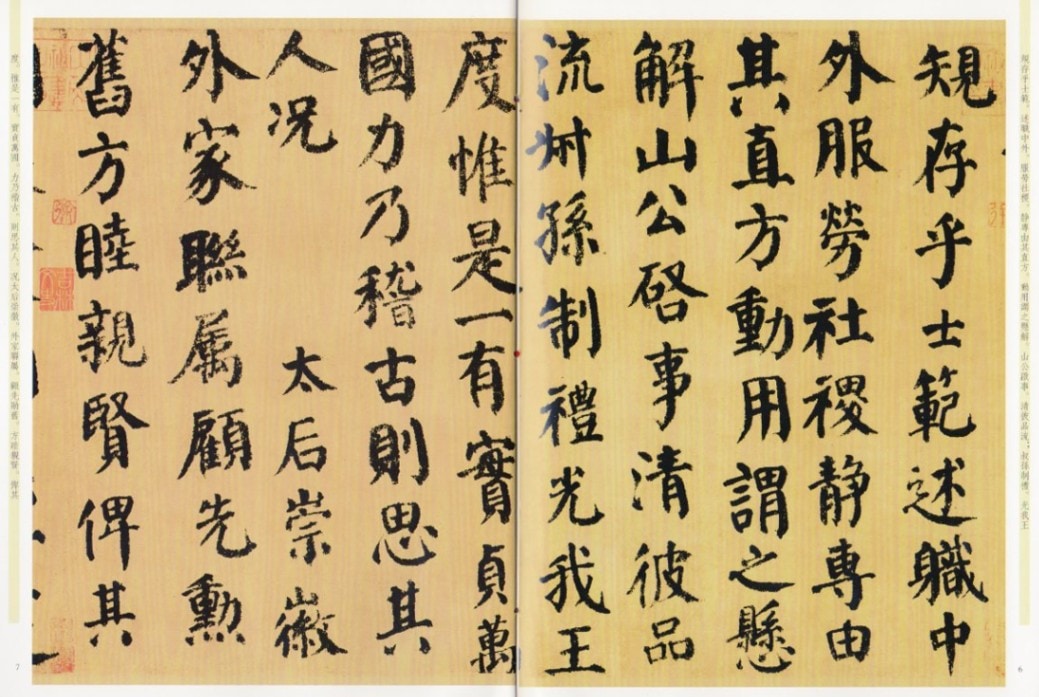 規存乎士範。述職中外。服勞社稷。静專由其直方。動用謂之懸解。山公啓事。清彼品流。叔孫制禮。光我王
規存乎士範述職中
外服勞社稷静專由
其直方動用謂之懸
解山公啓事清彼品
流叔孫制禮光我王
6
度惟是一有實貞萬
國力乃稽古則思其
人況 太后崇徽
外家聯属顧先勲
舊方睦親賢俾其
度。惟是一有。實貞萬國。力乃稽古。則思其人。況太后崇徽。外家聯屬。顧先勛舊。方睦親賢。俾其
7